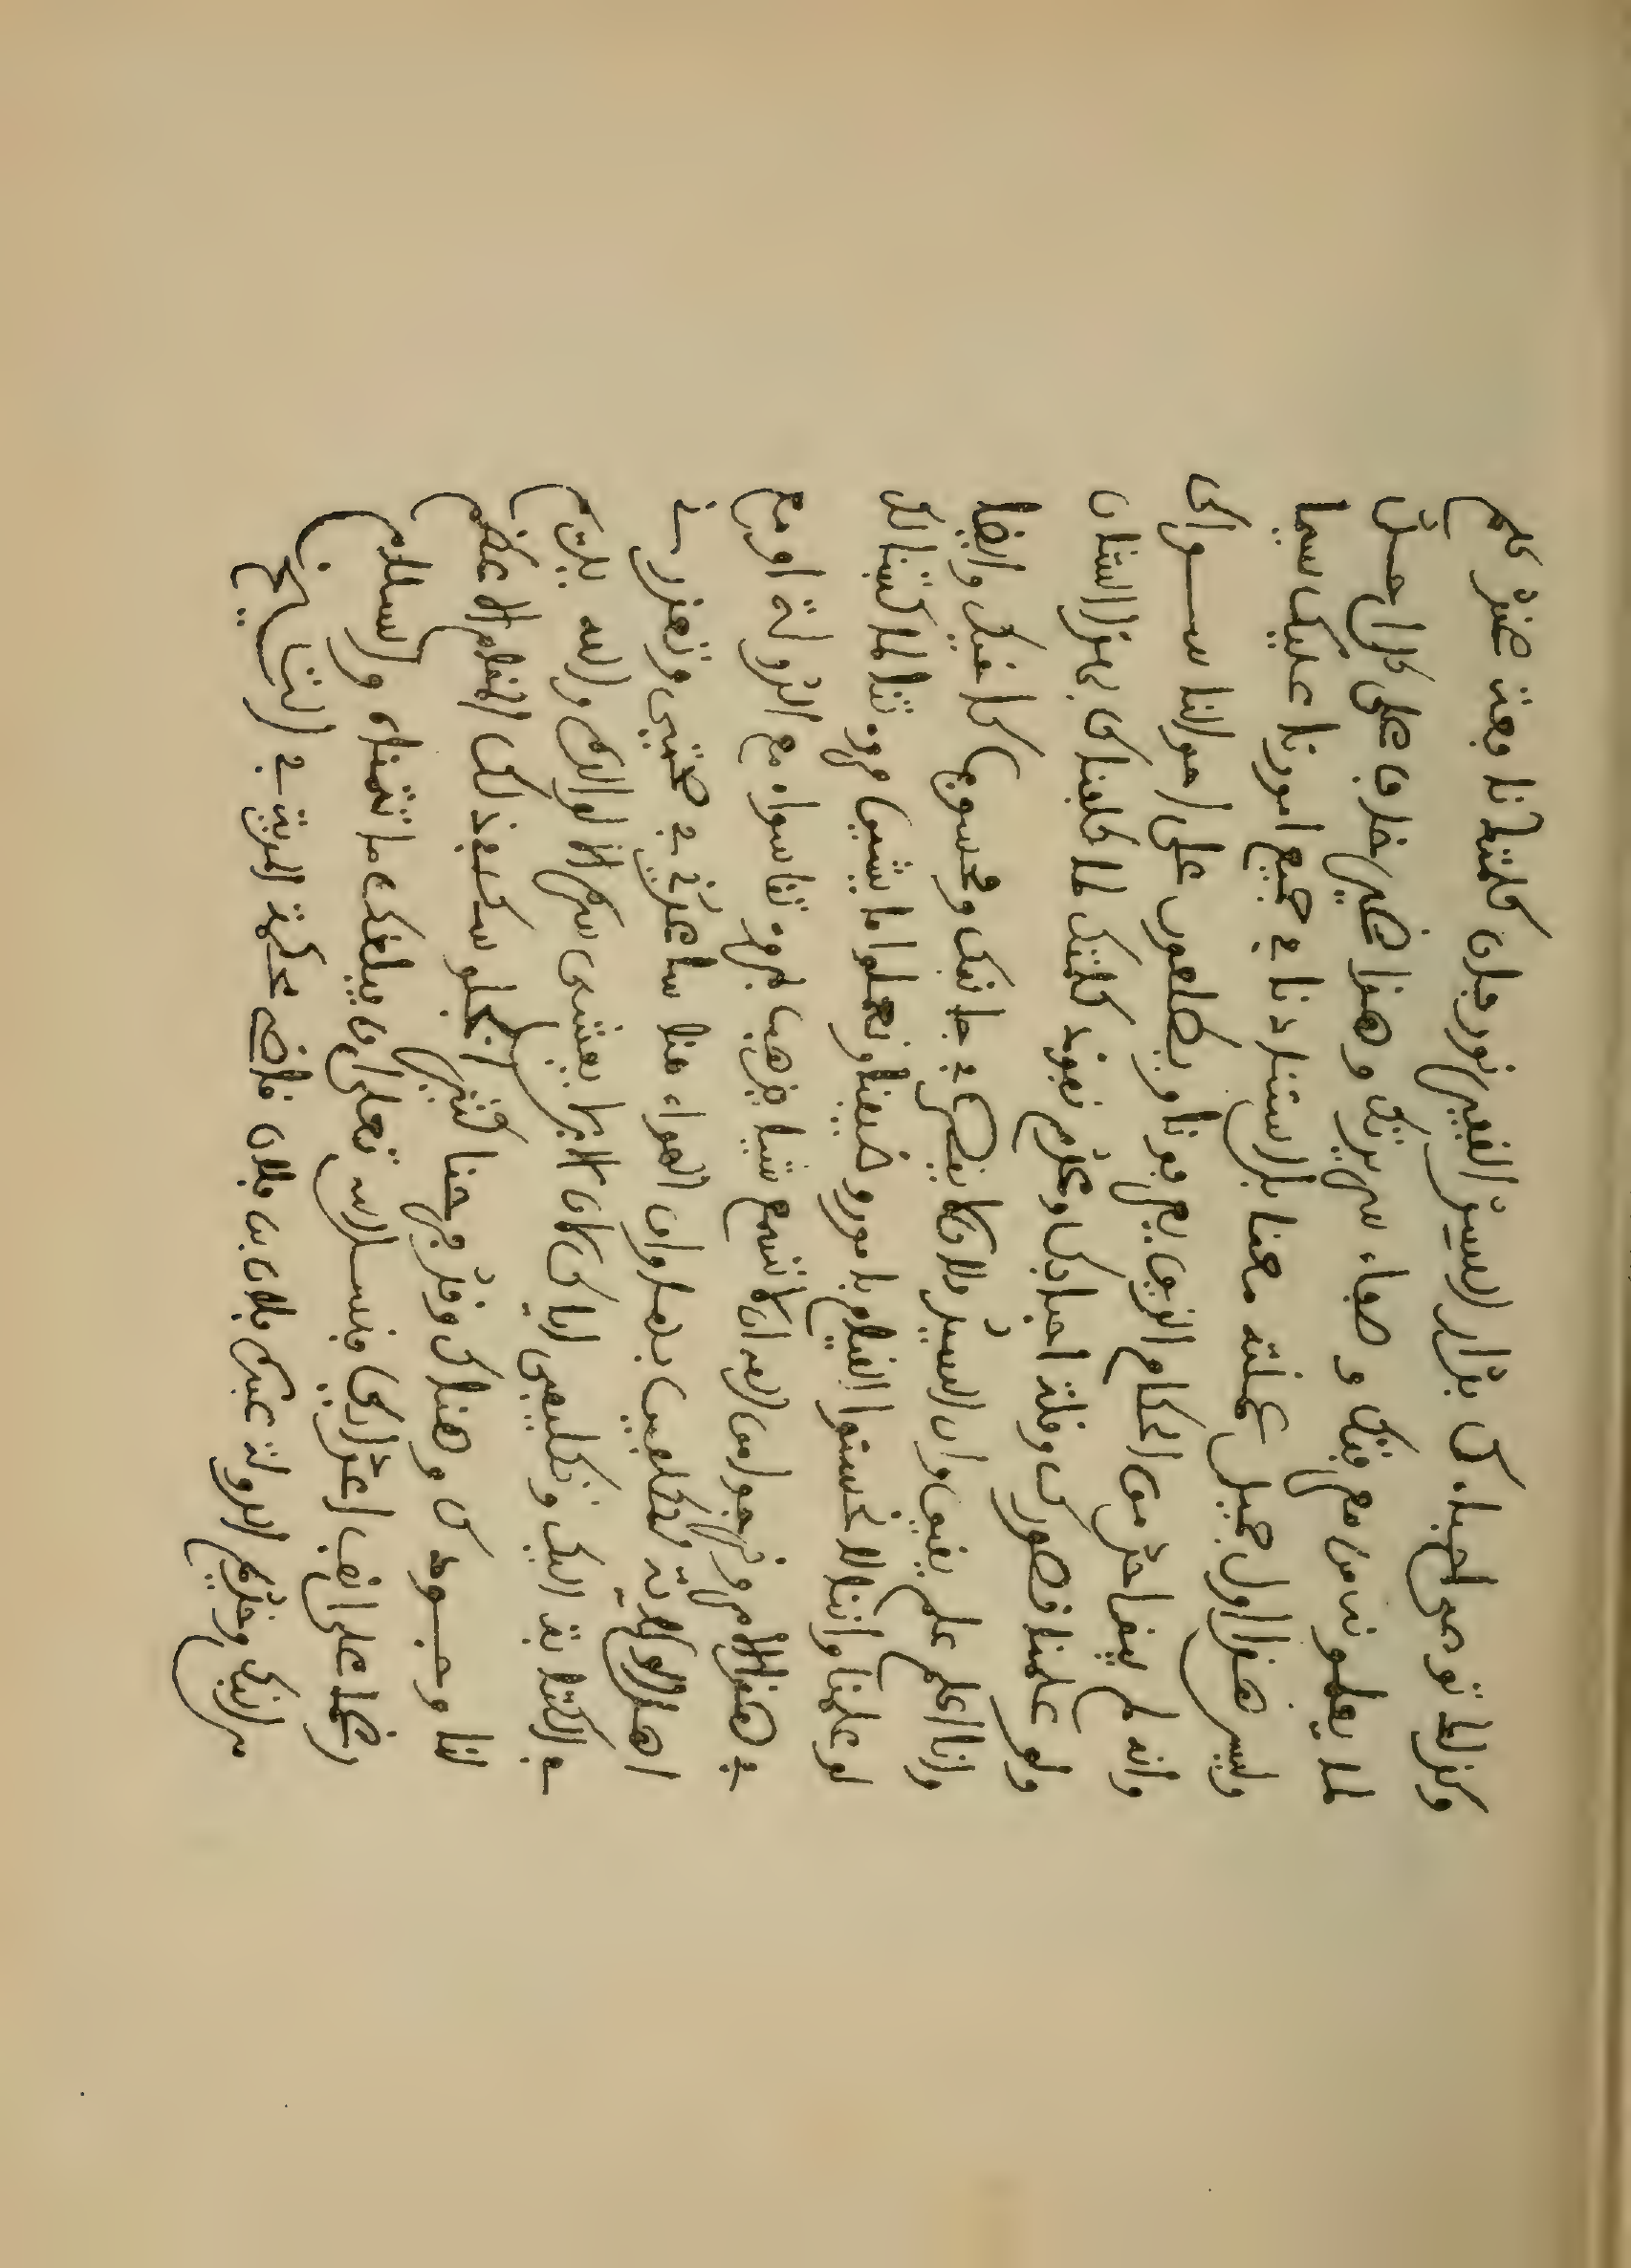 وكذا لما توصى احبابك بدار السيد كلمتنا نافعة ضدكم
لما يعلمون من فيك و صفاء سريرتك وهذا على كل احسن
وليس هذا اول جميل عملته معنا بل استنادنا في جميع امورنا عليك سيما
وانه لم يبقا احد من الحكام الذين يعرفونا ويطلعون على احوالنا سواك
ولو علمنا قصورك وقلة احبابك وعدم نفوذ كلمتك لما كلفناك بهذا الشان
وانا اعلم علم يقين وان السيد فلان لا يقصر في جانبك ومحسوب وايضا
لو علمنا واننا لا نحسنوا القيام بامور وضيفنا ونعملوا ما يشين عرضنا لما كتبنا لك
في هذا الامر ونرجوا من الله ان لا نسمع شيا يذهب سواء مع الدولة او مع
اهل الولاية المكلفين بها وان الهواء هنا ساعدني في صحتي
في الكتابة اليك وتكليفي اياك يفشى سر الوالد والله يديم
لنا وجودك وهناك وقد فرحنا كثيرا بجلوسك بذلك المقام الاعظم
رغما على انف فنسال الله تعلى ان يبلغك ما تتمناه والسلام
من ابنك وخديم الدولة عبدكم فلان بن فلان قاضي محكمة في التاريخ